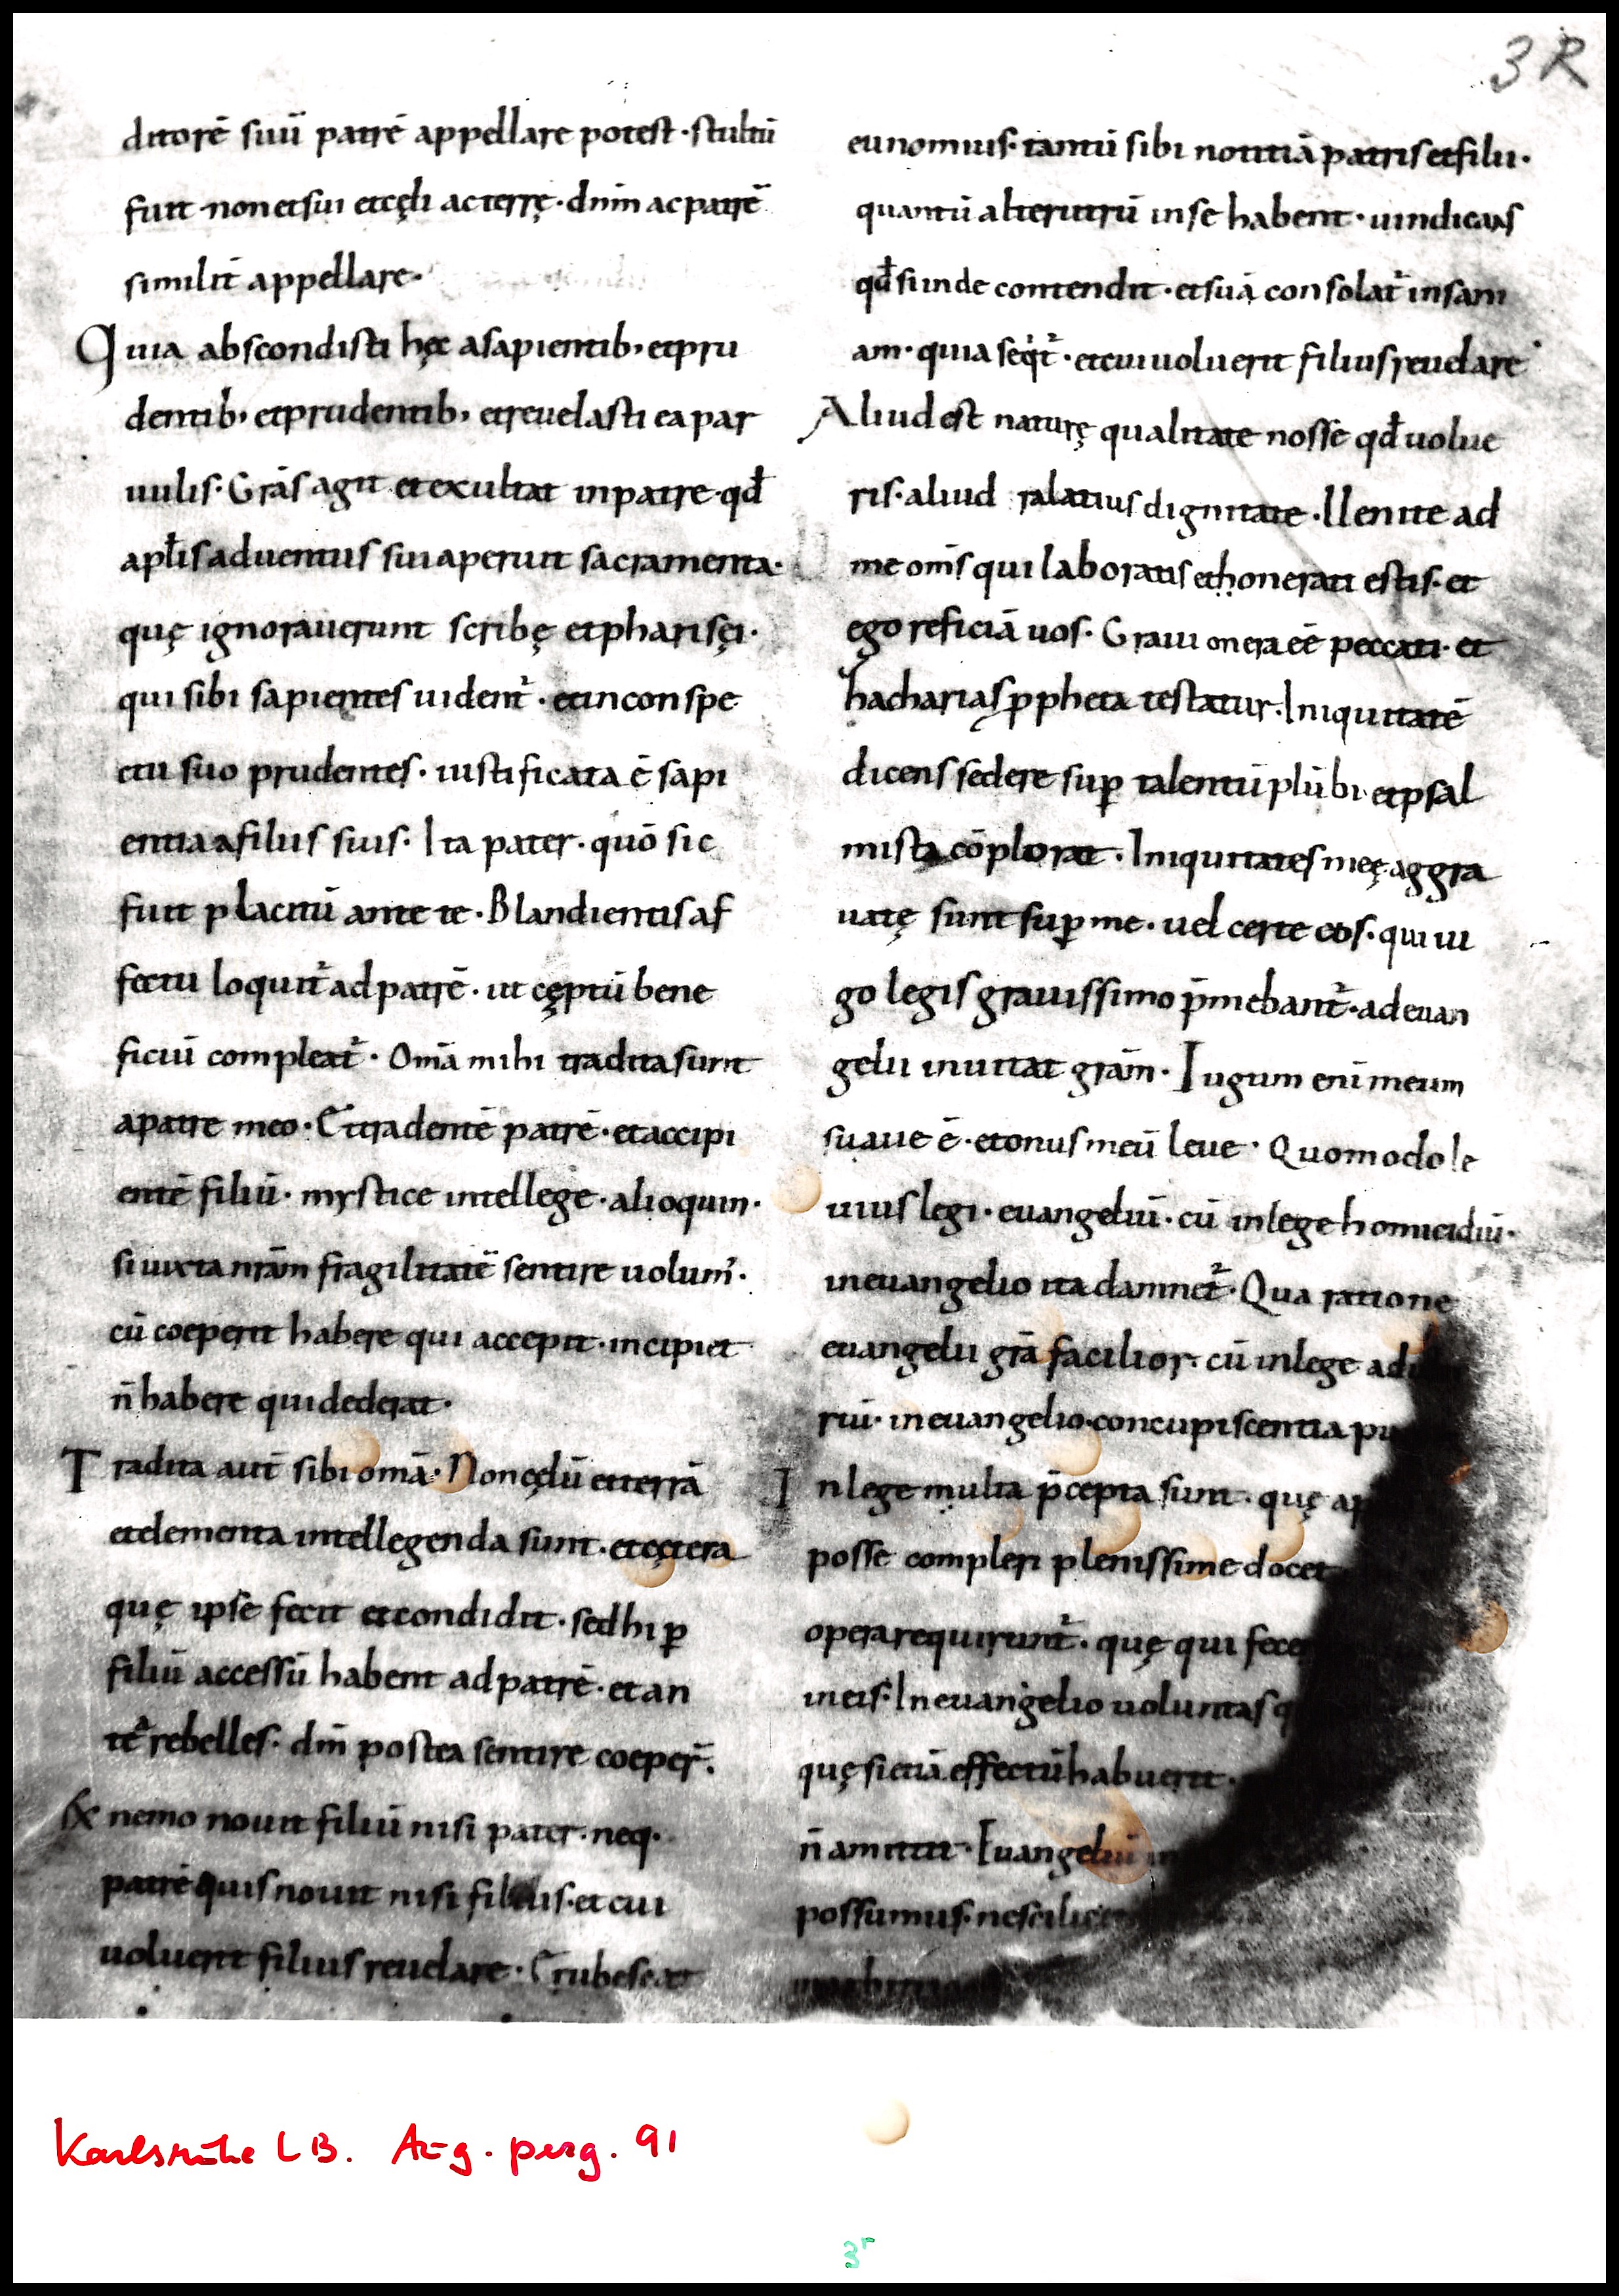 3 R
ditorē suū patrē appellare potest · stultū
fuit · non et sui et cęli ac terrę · dn̄m ac patrē
similit̄ appellare ·
Quia abscondisti hęc a sapientib; et pru
dentib; et prudentib; et reuelasti ea par
uulis · Grās agit et exultat in patre · qđ
apl̄is aduentus sui aperuit sacramenta ·
quę ignorauerunt scribę et pharisęi ·
qui sibi sapientes uident᷑ · et in conspe
ctu suo prudentes · iustificata ē sapi
entia a filiis suis · Ita pater · quō sic
fuit placitū ante te · Blandientis af
fectu loquit᷑ ad patrē · ut cęptū bene
ficiū compleat᷑ · Om̄a mihi tradita sunt
a patre meo · Et tradentē patrē · et accipi
entē filiū · mystice intellege · alioquin ·
si iuxta nr̄am fragilitatē sentire uolum᷒ ·
cū coeperit habere qui accepit · incipiet
n̄ habere qui dederat ·
Tradita aut̄ sibi om̄a · Non cęlū et terrā
et elementa intellegenda sunt · et cętera
quę ipse fecit et condidit · sed hi ꝑ
filiū accessū habent ad patrē · et an
te᷑ rebelles · dm̄ postea sentire coeper̄ ·
Et nemo nouit filiū nisi pater · neq·
patrē quis nouit nisi filius · et cui
uoluerit filius reuelare · Erubescat
eunomius · tantū sibi notitiā patris et filii ·
quantū alterutrū in se habent · uindicans
qđ si inde contendit · et suā consolat᷑ insani
am · quia seqit᷑ · et cui uoluerit filius reuelare
Aliud est naturę qualitate nosse qđ uolue
ris · aliud ralatius dignitate · Uenite ad
me om̄s qui laboratis et honerati estis · et
ego reficiā uos · Graui onera eē peccati · et
hacharias ꝓpheta testatur · Iniquitatē
dicens sedere suꝑ talentū plūbi · et psal
mista cōplorat · Iniquitates meę aggra
uatę sunt suꝑ me · uel certe eos · qui iu
go legis grauissimo p̄mebant᷑ · ad euan
gelii inuitat grām · Iugum enī meum
suaue ē · et onus meū leue · Quomodo le
uius legi · euangeliū · cū in lege homicidiū ·
in euangelio ita damnet᷑ · Qua ratione
euangelii grā facilior · cū in lege adu
riū · in euangelio concupiscentia pu
In lege multa p̄cepta sunt · quę ap
posse compleri plenissime docet
opera requirunt᷑ · quę qui fece
in eis · In euangelio uoluntas q
quę si etiā effectū habuerit ·
n̄ amittit · Euangeliū in
possumus · ne scilicet
Karlsruhe LB. Aug. perg. 91
3r